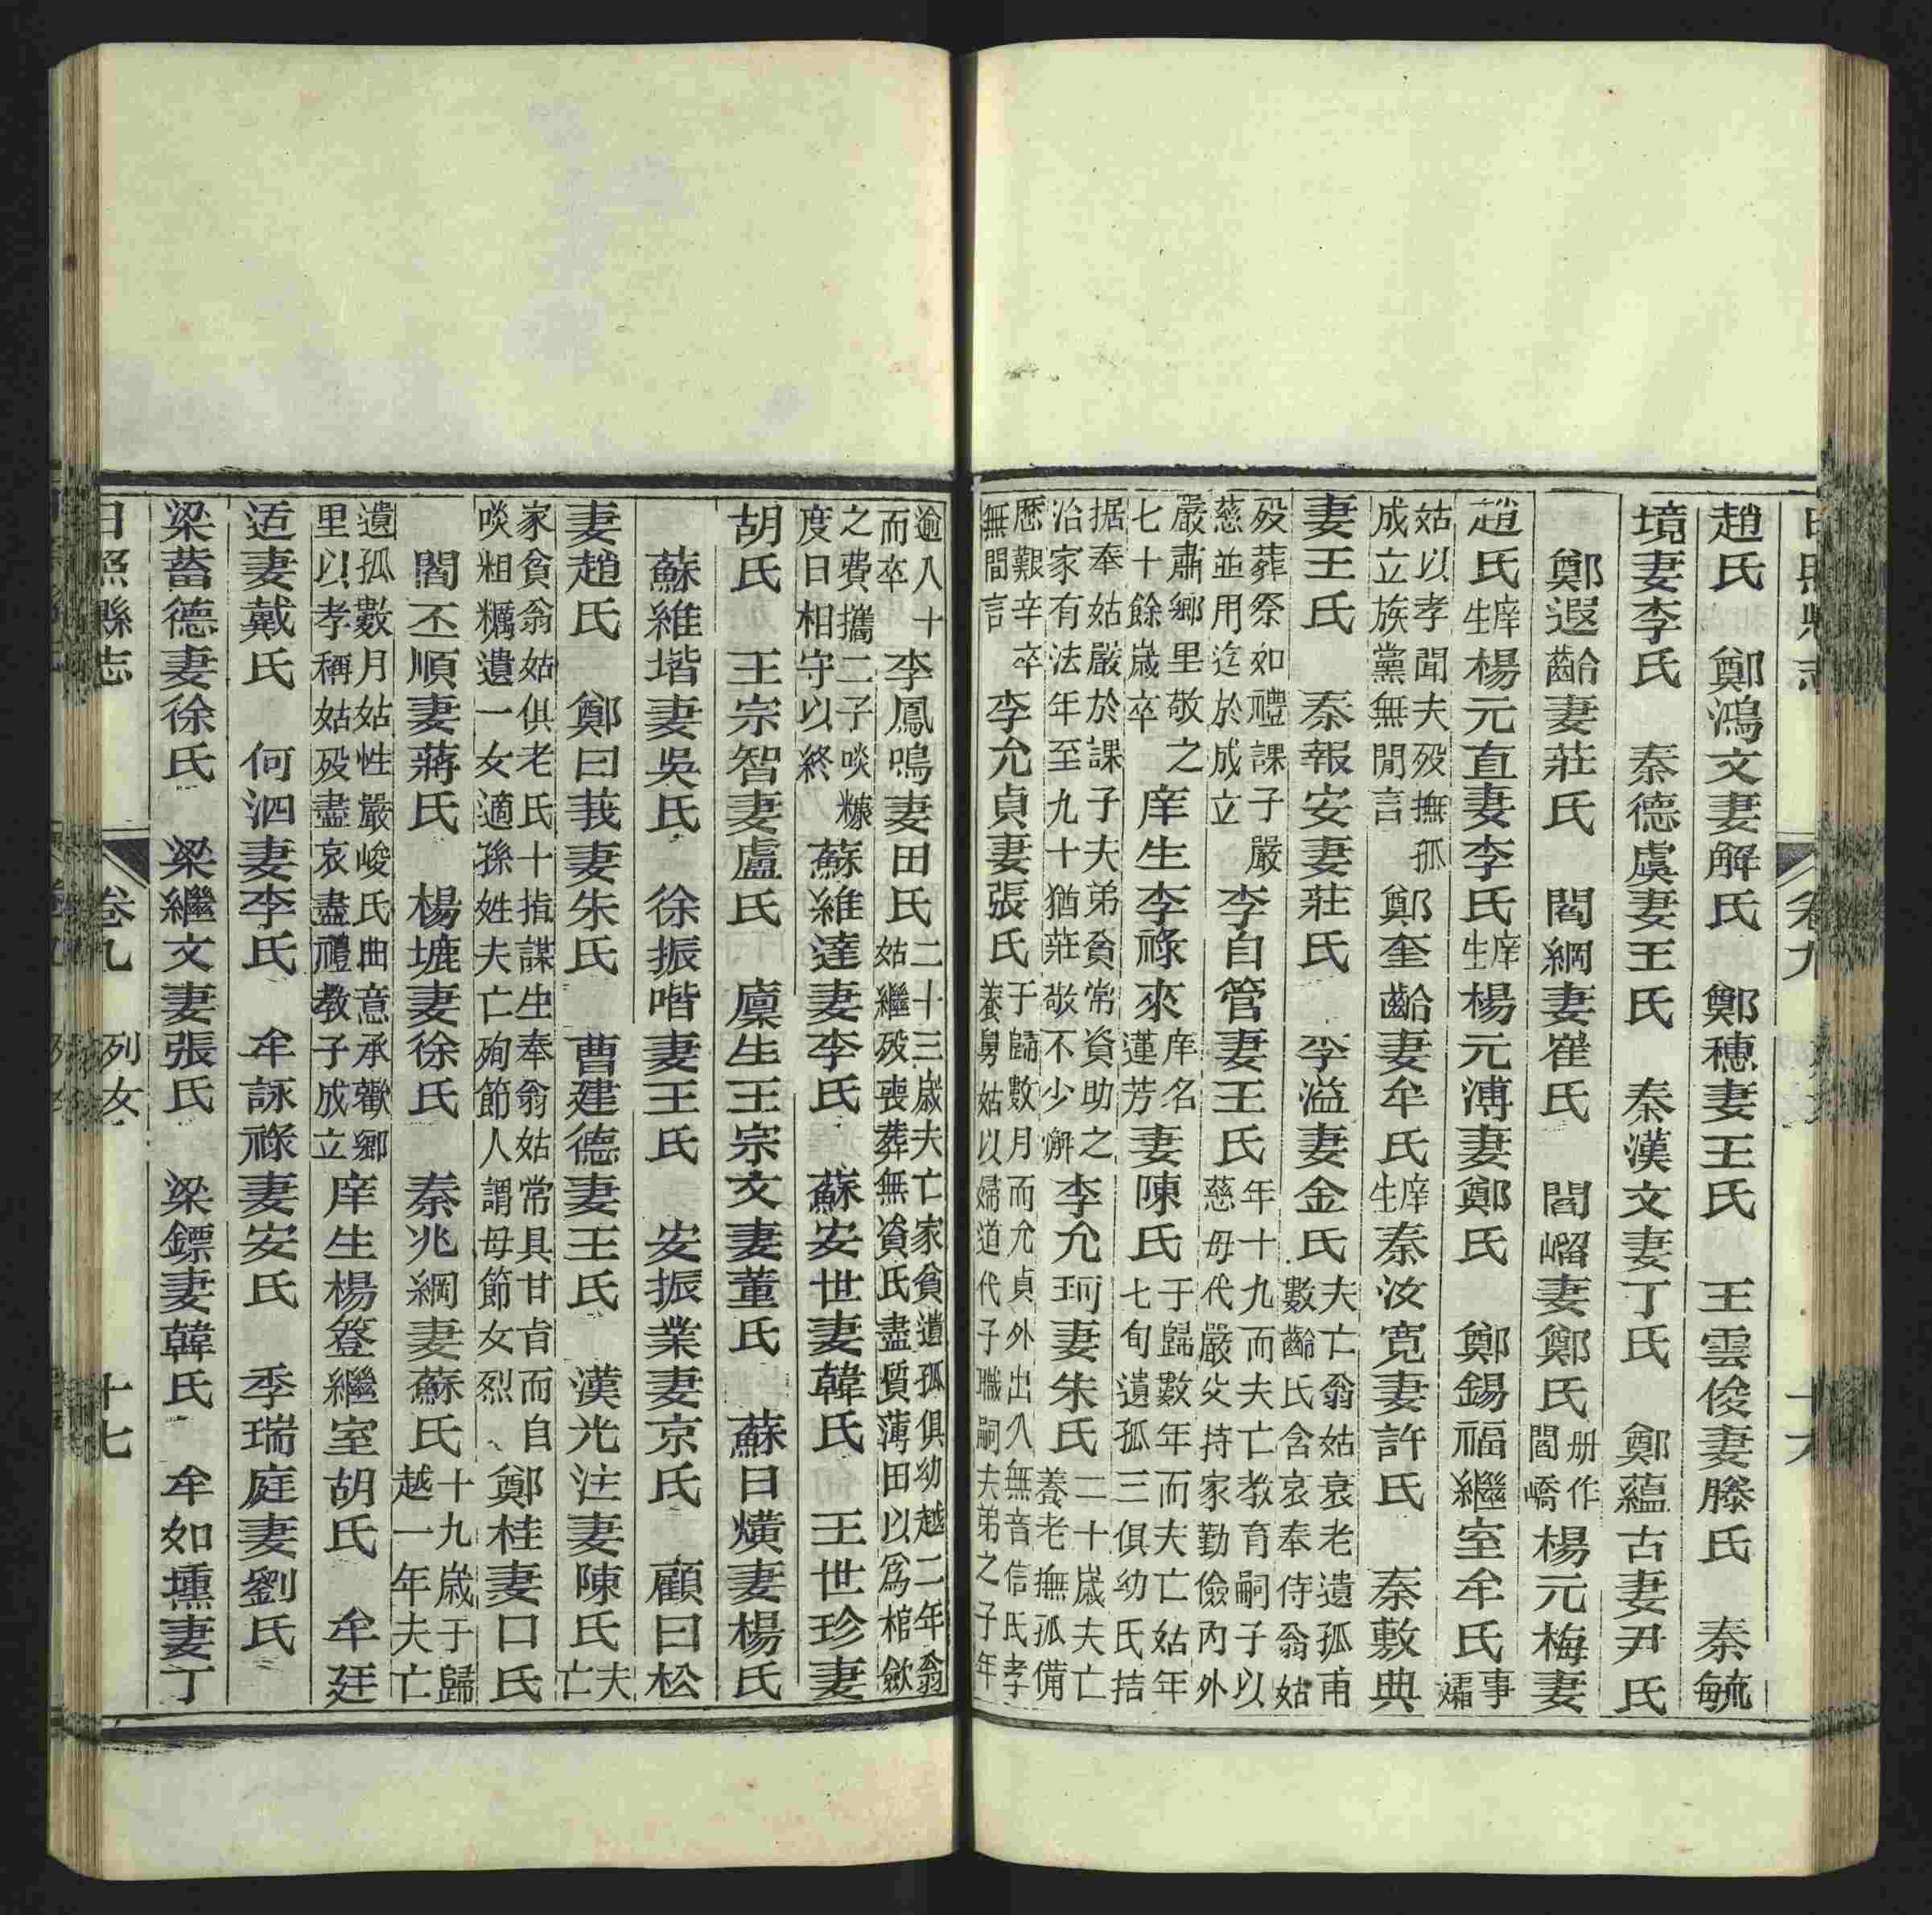 日照縣志 卷九 列女 十六
趙氏 鄭鴻文妻解氏 鄭穗妻王氏 王雲俊妻滕氏 秦毓
境妻李氏 秦德虞妻王氏 秦漢文妻丁氏 鄭蘊古妻尹氏
鄭遐齡妻莊氏 閻綱妻崔氏 閻嵧妻鄭氏册作閻嶠 楊元梅妻
趙氏 庠生楊元直妻李氏 庠生楊元溥妻鄭氏 鄭錫福繼室牟氏事孀
姑以孝聞夫歿撫孤成立族黨無閒言 鄭奎齡妻牟氏 庠生秦汝寬妻許氏 秦敷典
妻王氏 秦報安妻莊氏 李溢妻金氏夫亡翁姑衰老遺孤甫數齡氏含哀奉侍翁姑
歿葬祭如禮課子嚴慈並用迄於成立 李自管妻王氏年十九而夫亡教育嗣子以慈母代嚴父持家勤儉內外
嚴肅鄉里敬之七十餘歲卒 庠生李祿來庠名蓮芳妻陳氏于歸數年而夫亡姑年七旬遺孤三俱幼氏拮
据奉姑嚴於課子夫弟貧常資助之治家有法年至九十猶莊敬不少懈 李允珂妻朱氏二十歲夫亡養老撫孤備
歷艱辛卒無間言 李允貞妻張氏于歸數月而允貞外出久無音信氏孝養舅姑以婦道代子職嗣夫弟之子年
逾八十而卒 李鳳鳴妻田氏二十三歲夫亡家貧遺孤俱幼越二年翁姑繼歿喪葬無資氏盡質薄田以爲棺斂
之費攜二子啖糠度日相守以終 蘇維達妻李氏 蘇安世妻韓氏 王世珍妻
胡氏 王宗智妻盧氏 廩生王宗文妻董氏 蘇日熿妻楊氏
蘇維堦妻吳氏 徐振喈妻王氏 安振業妻京氏 顧曰松
妻趙氏 鄭曰莪妻朱氏 曹建德妻王氏 漢光注妻陳氏夫亡
家貧翁姑俱老氏十指謀生奉翁姑常具甘旨而自啖粗糲遺一女適孫姓夫亡殉節人謂母節女烈 鄭桂妻口氏
閻丕順妻蔣氏 楊塘妻徐氏 秦兆綱妻蘇氏十九歲于歸越一年夫亡
遺孤數月姑性嚴峻氏曲意承歡鄉里以孝稱姑歿盡哀盡禮教子成立 庠生楊登繼室胡氏 牟廷
适妻戴氏 何泗妻李氏 牟詠祿妻安氏 季瑞庭妻劉氏
梁蓄德妻徐氏 梁繼文妻張氏 梁鏢妻韓氏 牟如壎妻丁
日照縣志 卷九 列女 十七